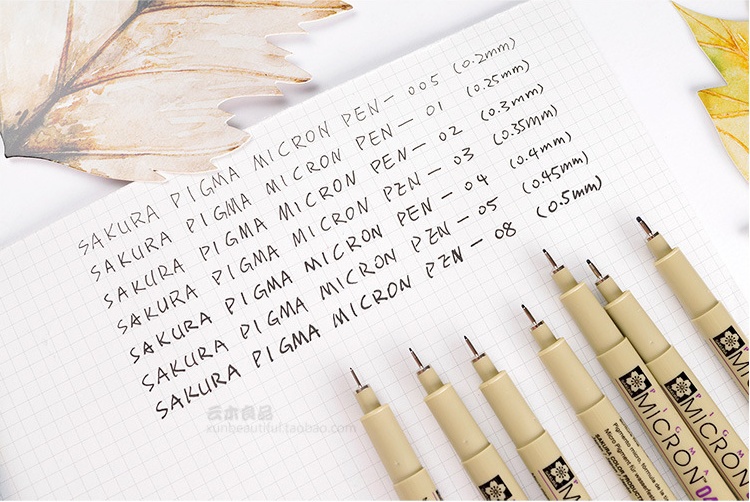 SAKURA PIGMA MICRON PEN - 005 (0.2mm)
SAKURA PIGMA MICRON PEN - 01 (0.25mm)
SAKURA PIGMA MICRON PEN - 02 (0.3mm)
SAKURA PIGMA MICRON PEN - 03 (0.35mm)
SAKURA PIGMA MICRON PEN - 04 (0.4mm)
SAKURA PIGMA MICRON PEN - 05 (0.45mm)
SAKURA PIGMA MICRON PEN - 08 (0.5mm)
云木良品
xunbeautiful.taobao.com
PIGMA
MICRON
PIGMA
MICRON 04
PIGMA
MICRON
SAKURA COLOR PRODUCTS